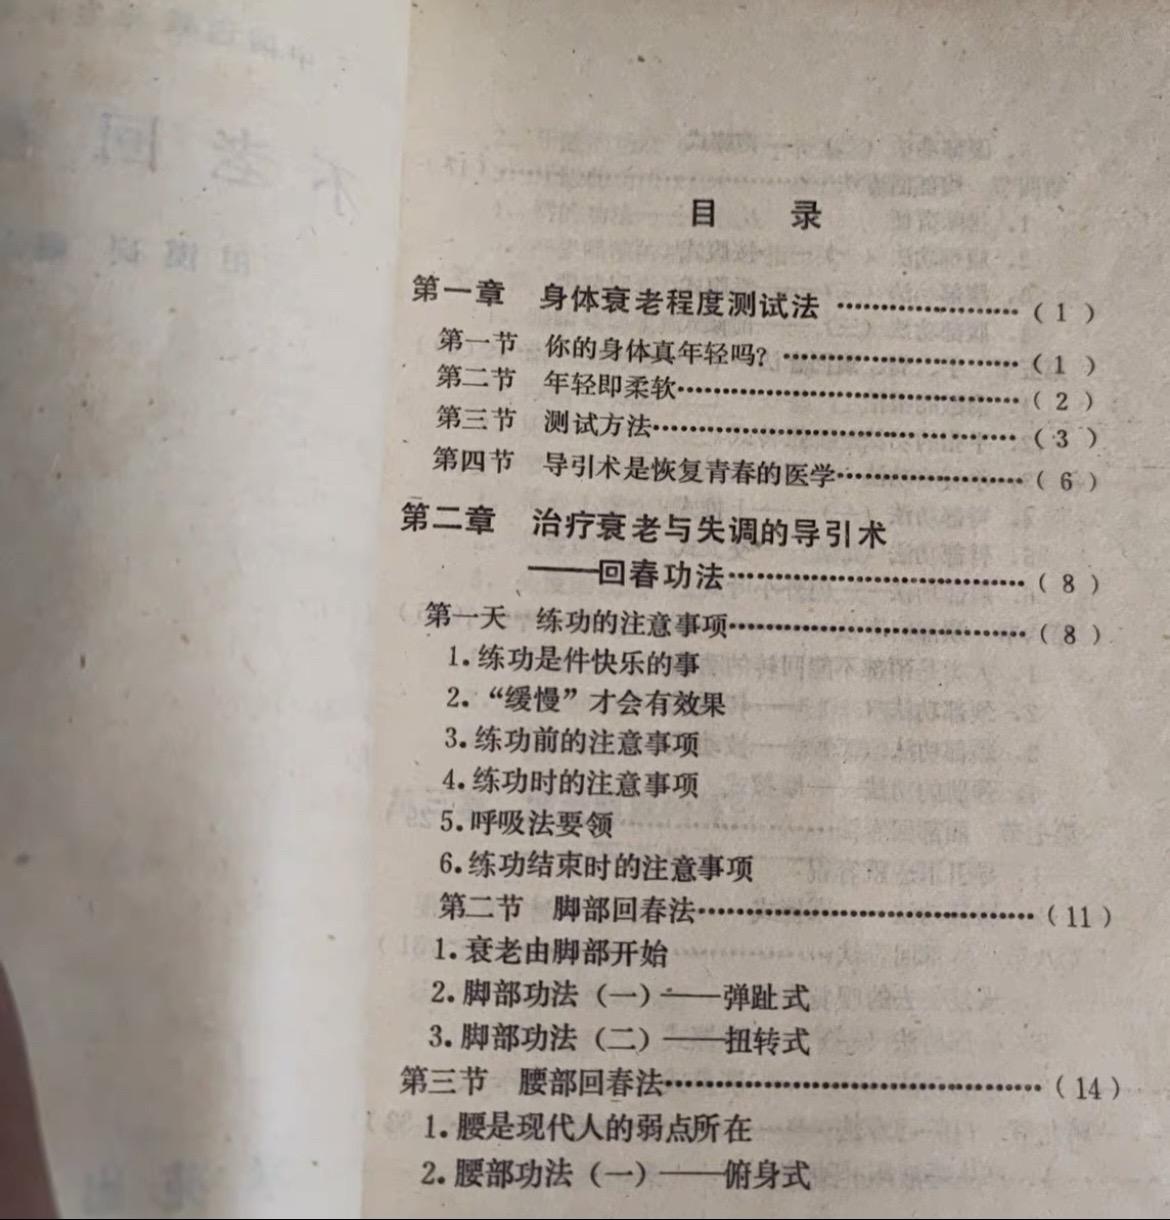 目 录
第一章 身体衰老程度测试法 ………………( 1 )
第一节 你的身体真年轻吗? ………………( 1 )
第二节 年轻即柔软………………………( 2 )
第三节 测试方法…………………………( 3 )
第四节 导引术是恢复青春的医学…………( 6 )
第二章 治疗衰老与失调的导引术
——回春功法………………………( 8 )
第一天 练功的注意事项…………………( 8 )
1.练功是件快乐的事
2.“缓慢”才会有效果
3.练功前的注意事项
4.练功时的注意事项
5.呼吸法要领
6.练功结束时的注意事项
第二节 脚部回春法………………………( 11 )
1.衰老由脚部开始
2.脚部功法（一）——弹趾式
3.脚部功法（二）——扭转式
第三节 腰部回春法…………………………( 14 )
1.腰是现代人的弱点所在
2.腰部功法（一）——俯身式